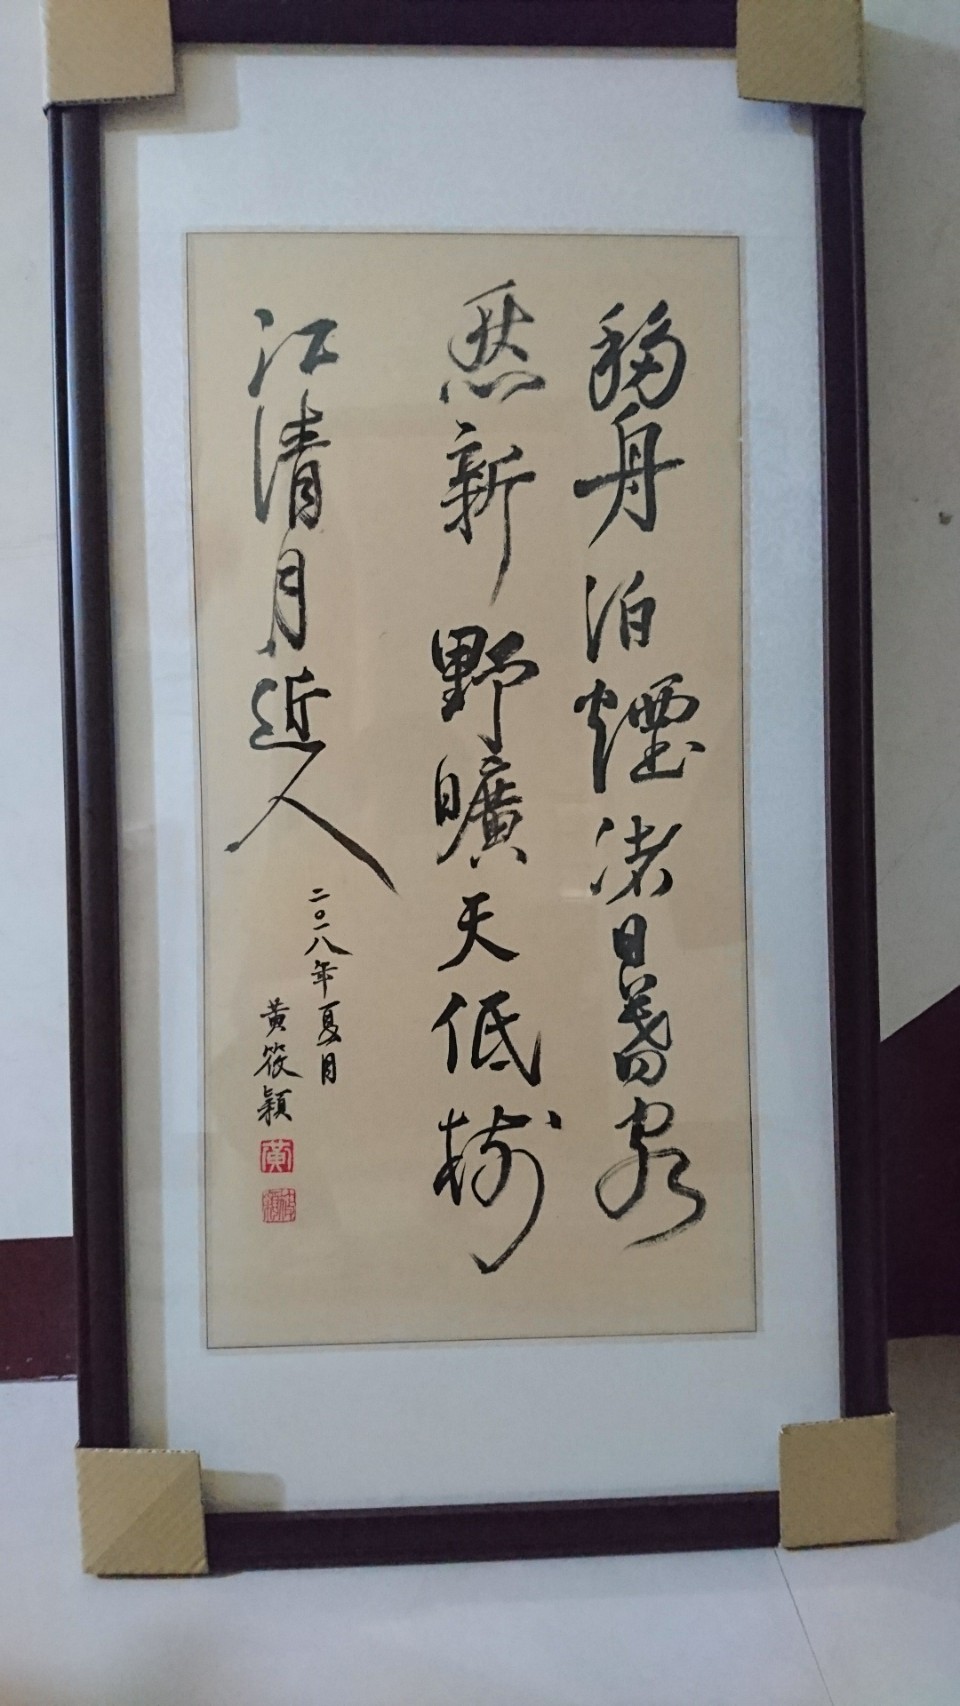 移舟泊煙渚日暮客
愁新野曠天低樹
江清月近人
二〇一八年夏月
黃筱穎
黃